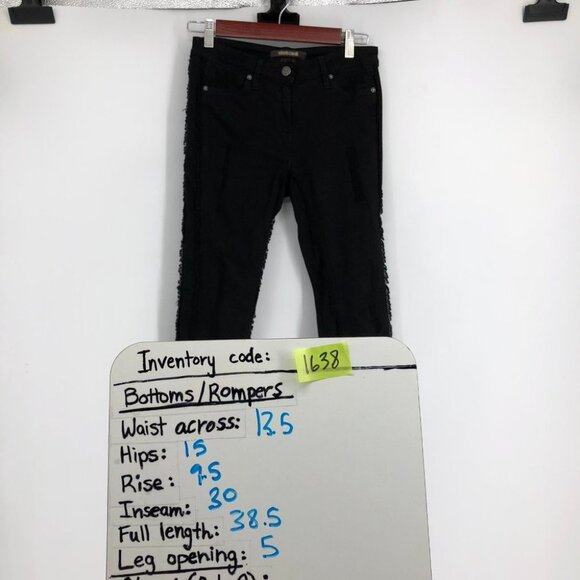 Inventory code: 1638
Bottoms/Rompers
Waist across: 13.5
Hips: 15
Rise: 9.5
Inseam: 30
Full length: 38.5
Leg opening: 5